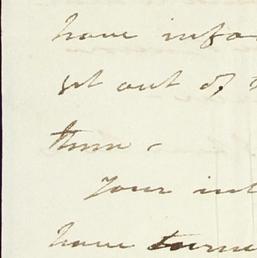 have info
get out of
them.
Your int
have turne